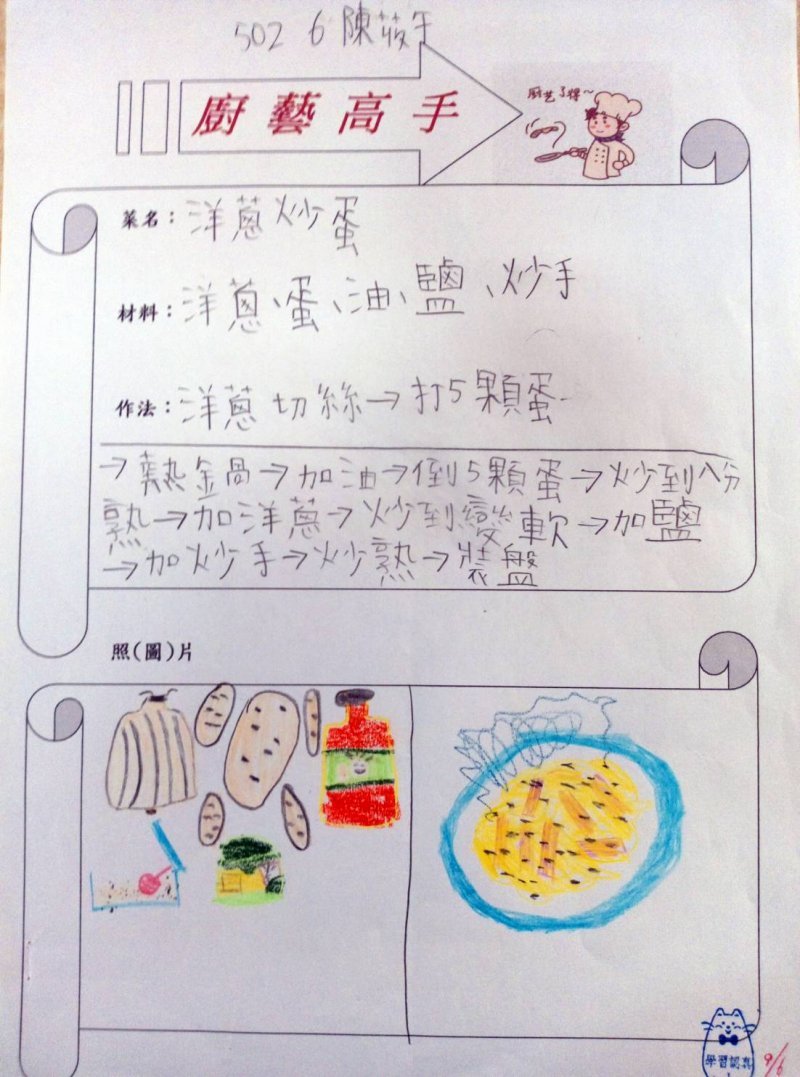 502 6 陳筱午
廚藝高手
廚艺了得~
菜名：洋蔥炒蛋
材料：洋蔥、蛋、油、鹽、炒手
作法：洋蔥切絲→打5顆蛋
→熱金咼→加油→倒5顆蛋→炒到八分
熟→加洋蔥→炒到變軟→加鹽
→加炒手→炒熟→裝盤
照(圖)片
學習認真
9/6